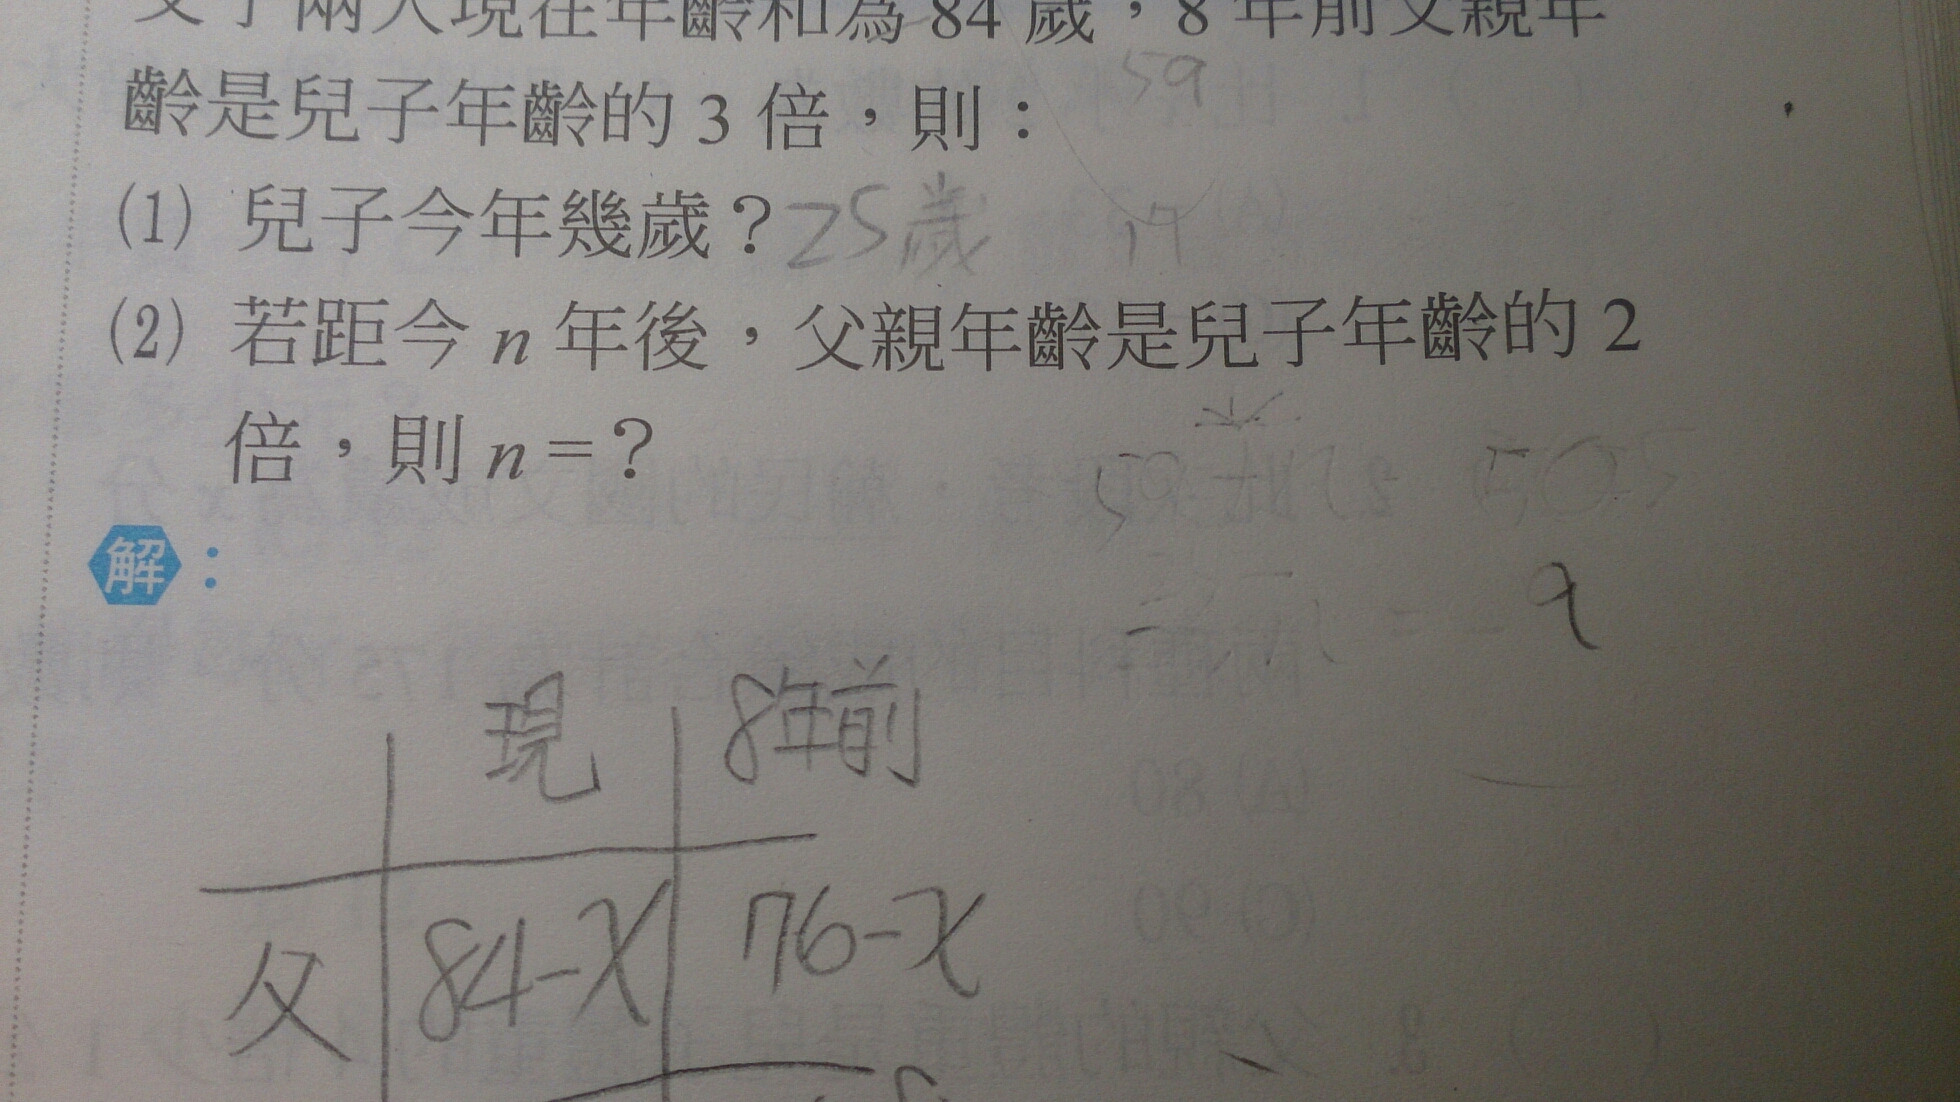 父子兩人現在年齡和為 84 歲，8 年前父親年
59
齡是兒子年齡的 3 倍，則：
(1) 兒子今年幾歲？25歲
17
(2) 若距今 n 年後，父親年齡是兒子年齡的 2
倍，則 n =？
解：
現 8年前
父 84-X 76-X